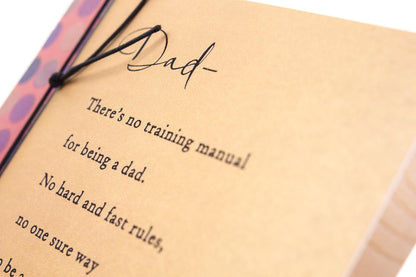 Dad-
There's no training manual
for being a dad.
No hard and fast rules,
no one sure way
to be a